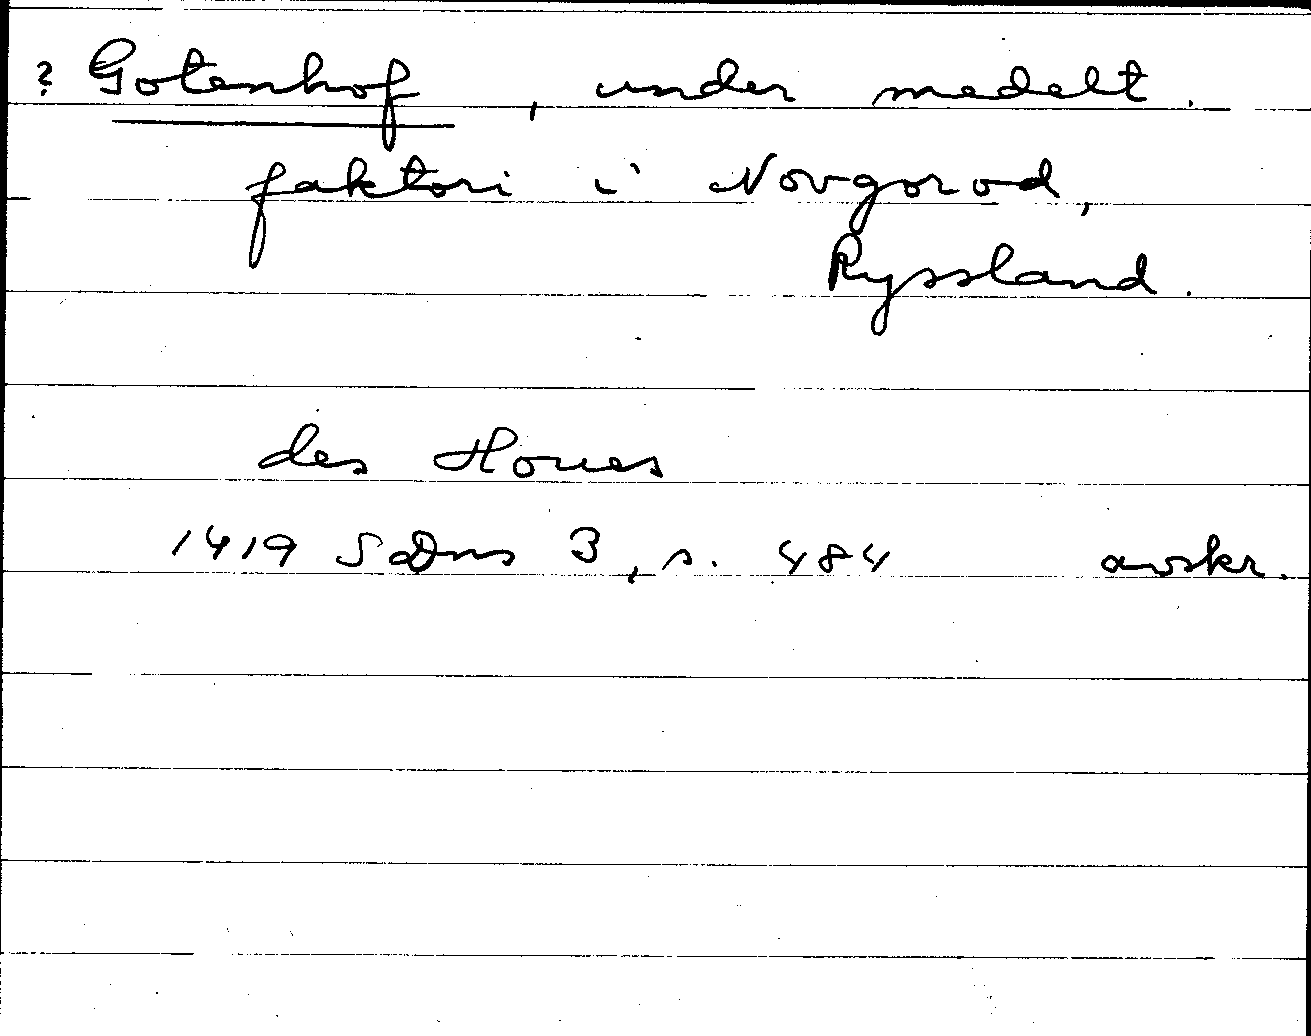 ? Gotenhof, under medelt.
faktori i Novgorod,
Ryssland.
des Houes
1419 SDns 3, s. 484 avskr.